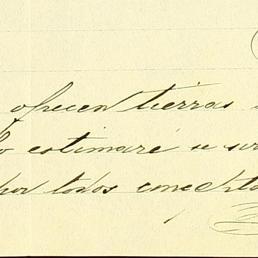 ofrecen tierras
lo estimaré se
por todos concepto